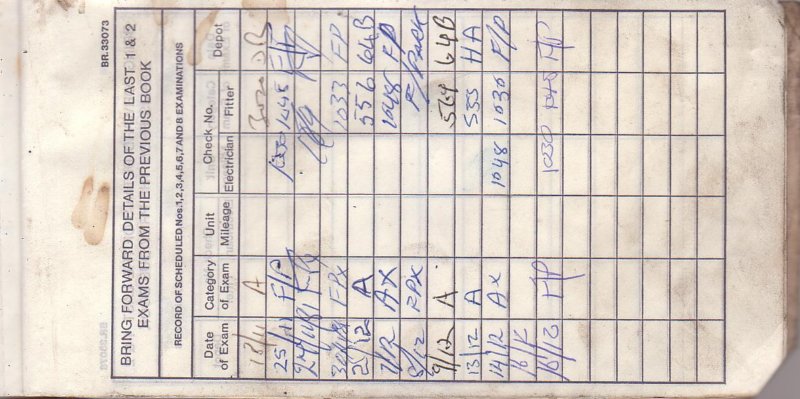 BR.33073
BRING FORWARD DETAILS OF THE LAST 1 & 2
EXAMS FROM THE PREVIOUS BOOK
RECORD OF SCHEDULED Nos.1,2,3,4,5,6,7 AND B EXAMINATIONS
Date of Exam Category of Exam Unit Mileage Check No. Electrician Fitter Depot
18/11 A 3020
25/11 F/P 1048
FPX 1033 FP
2/12 A 556 64B
7/12 AX 1048 FP
8/12 FPX
9/12 A 564 64B
13/12 A 555 HA
14/12 AX 1048 1030 F/P
F/P 1030 F/P